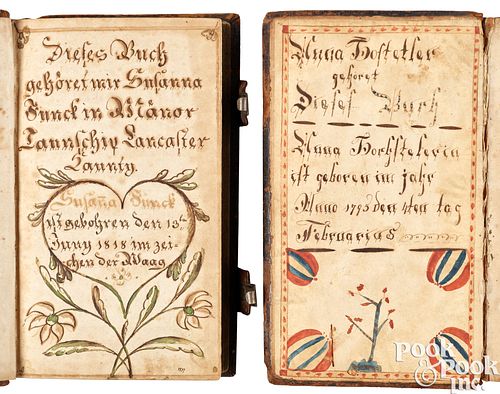 Dieses Buch
gehöret mir Susanna
Funck in Mänor
Taunschip Lancaster
Caunty.
Susaña Funck
ist gebohren den 13t
Juny 1818 im zei-
chen der Waag
Anna Hostetler
gehöret
Dieses Buch
Anna Hochstelerin
ist geboren im jahr
Anno 1793 den 4ten tag
Februarius
Pook
& Pook
inc